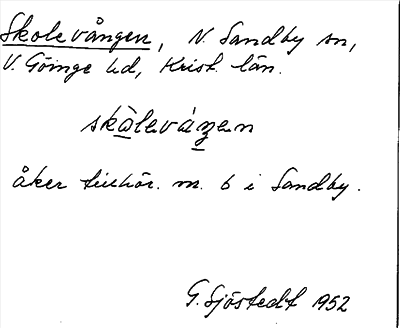 Skolevången, N. Sandby sn,
V. Göinge hd, Krist. län.
skòleváŋen
åker tillhör. nr. 6 i Sandby.
G. Sjöstedt 1952